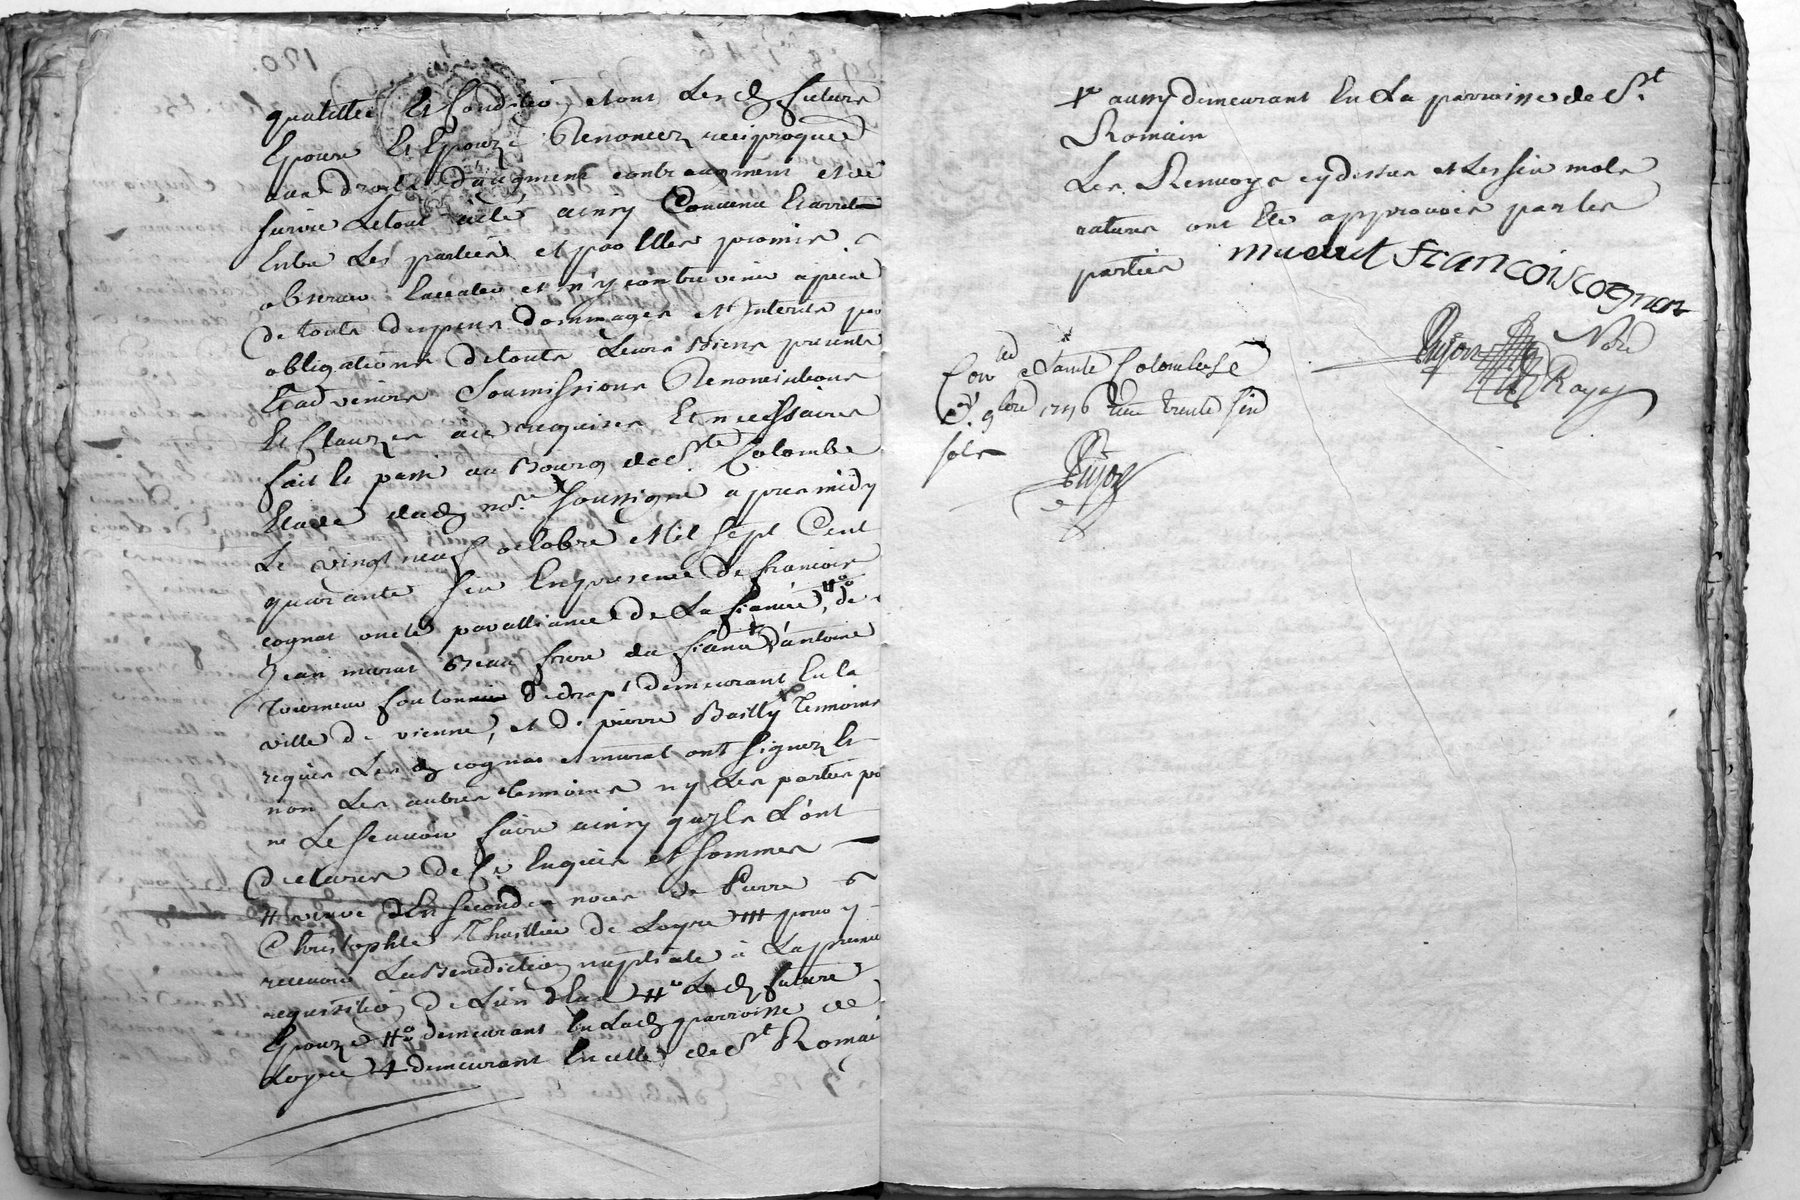 qualittée Et Condition, etont Les d. futurs
Epoux Et Epouze Renoncez reciproquemt
aux droits d'augment contraugment et de
survie Letout aeté ainsy Convenu Et arreté
Entre Les parties et par Elles promis
observer Executer et n'y contrevenir apeine
de touts despens dommages et Interets par
obligations detouts Leurs Biens presents
Et advenirs Soumissions Renonciations
Et Clauzes ace requises Et necessaires
fait Et passé au Bourg de Ste Colombe
Etude dud. nore soussigné apres midy
Le vingt neuf octobre Mil Sept Cent
quarante six En presence de francois
cognat oncle par alliance de La fiancée, # de
Jean murat Beau frere du fiancé d'antoine
Tourneux foulon de drapt demeurant En la
ville de vienne, et de pierre Bailly Temoins
requis Les d. cognat et murat ont signez Et
non Les autres temoins ny Les parties pr
ne Le scavoir faire ainsy quyls L'ont
Declarez de Ce Enquis et sommes
# veuve En secondes noces de Pierre
Christophle Thaillier de Loyre ### pour y
recevoir La Benediction nuptiale à La premre
requisition de L'un d'Eux # La d. future
Epouze # demeurant En Lad. parroisse de
Loyre + demeurant En celle de St Romai
+ aussy demeurant En La parroisse de St
Romain
Les Renvoys cy dessus et Les six mots
ratures ont Eté approuvés par les
parties murat francois cognat
Dujon Nore
Royal
Conlé a Sainte Colombe Le
9bre 1746 Reçu trente six
sols
Dujon